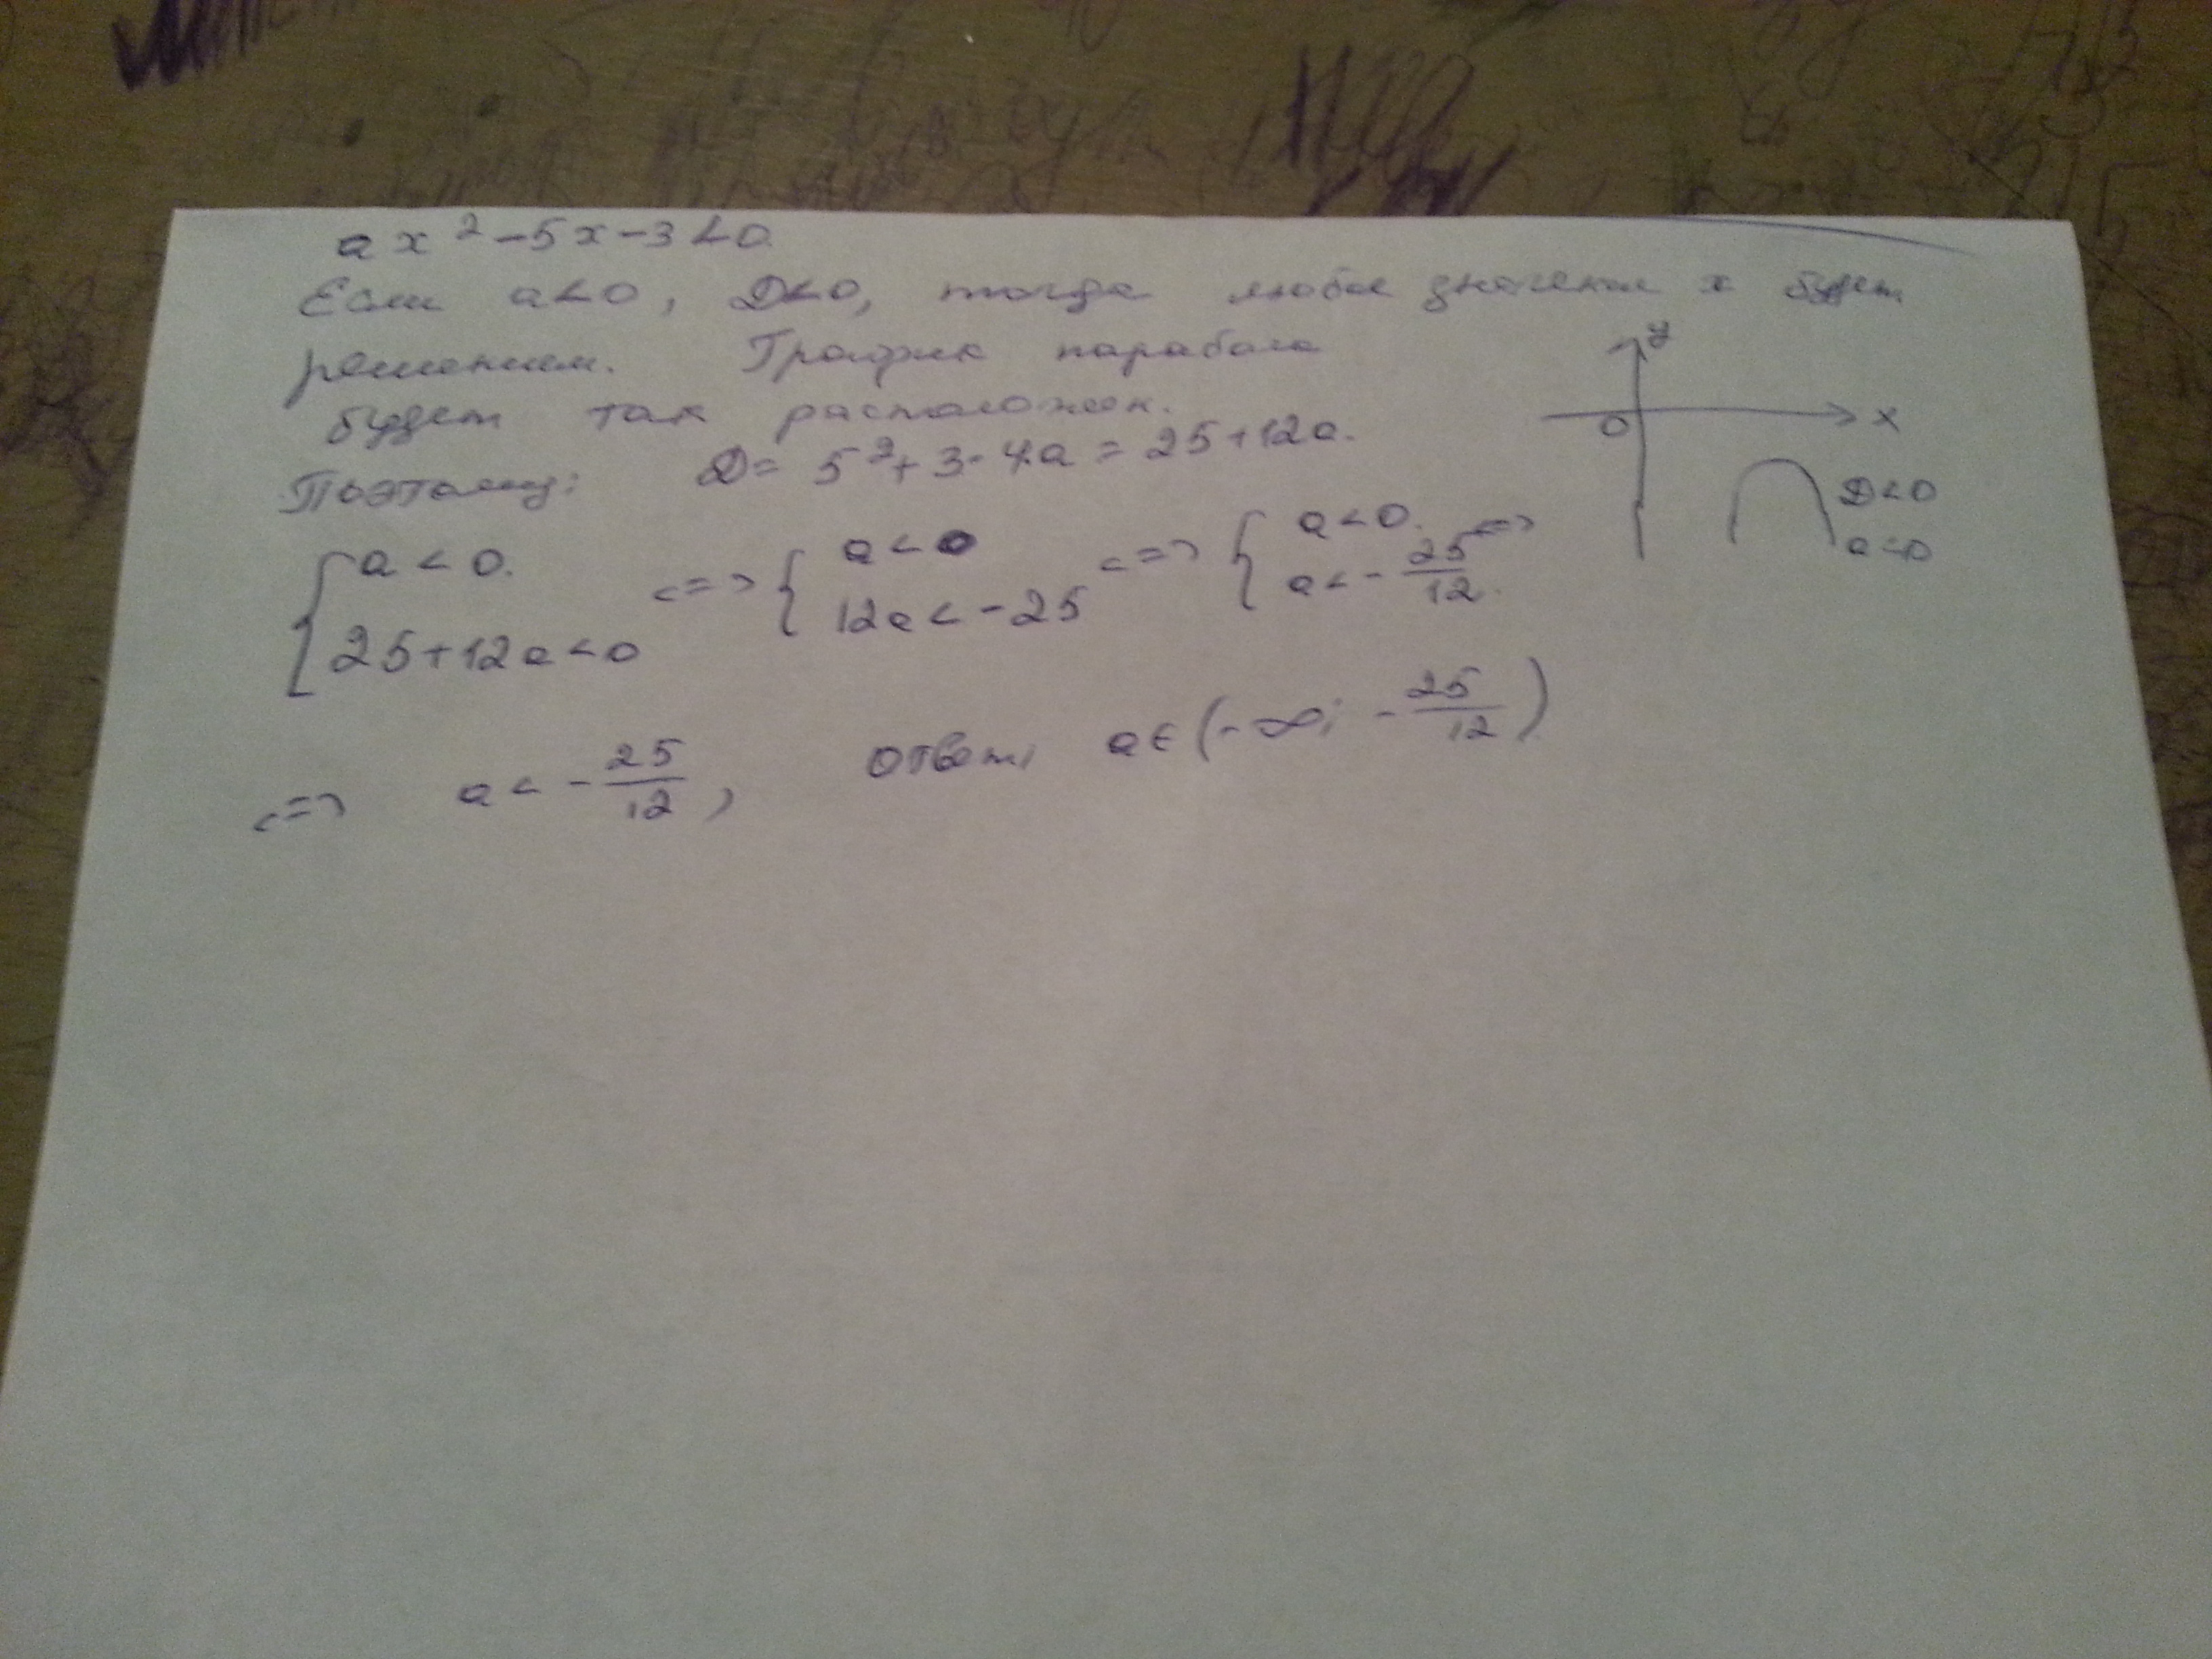 ax² - 5x - 3 < 0.
Если a < 0, D < 0, тогда любое значение x будет
решением. График парабола
будет так расположен.
Поэтому: D = 5² + 3·4a = 25 + 12a.
{ a < 0. 25 + 12a < 0 <=> { a < 0 12a < -25 <=> { a < 0. a < - 25/12. <=>
<=> a < - 25/12, Ответ: a ∈ (-∞; - 25/12)
y
0 x
D < 0
a < 0